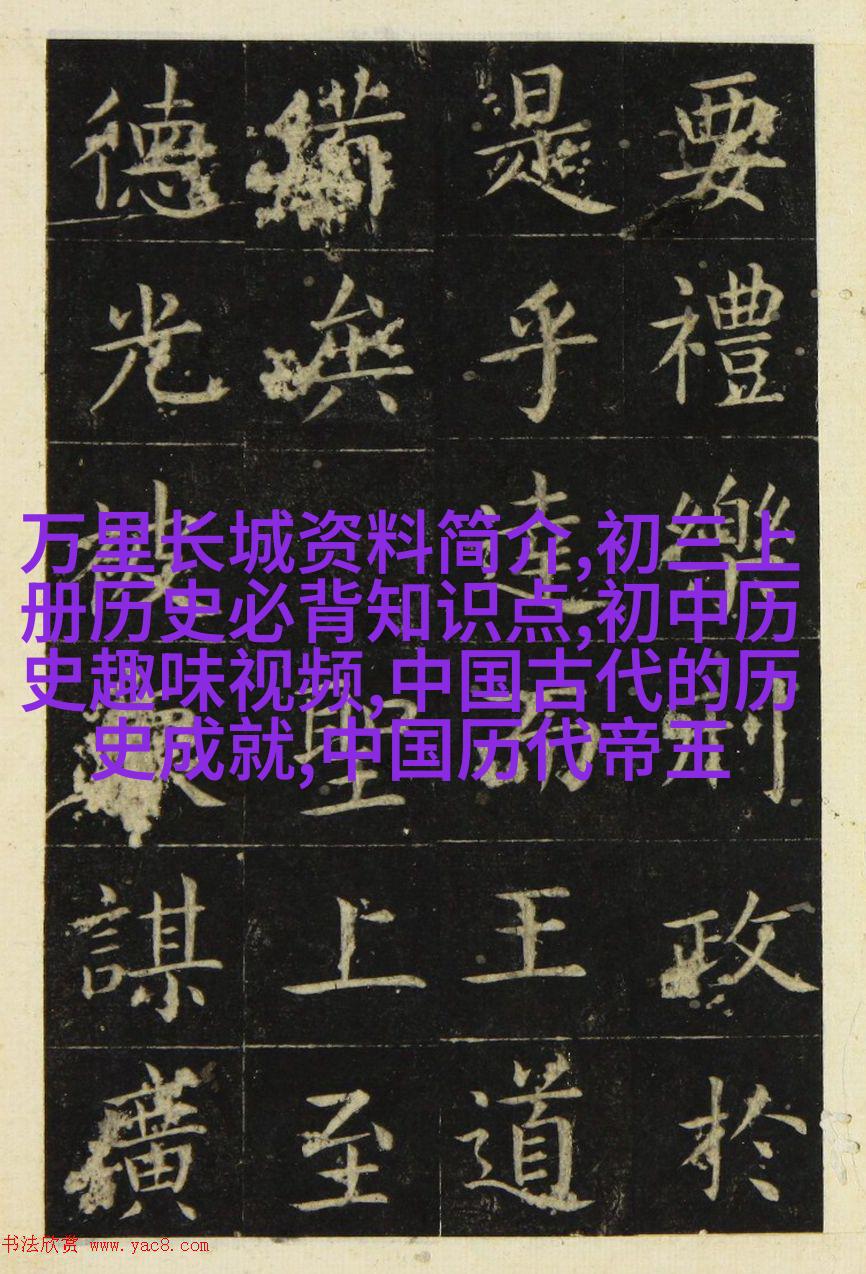 要禮樂刑政於
是乎達王道
備無聖上至
德光被謀廣
万里长城资料简介,初三上
册历史必背知识点,初中历
史趣味视频,中国古代的历
史成就,中国历代帝王
书法欣赏 www.yac8.com